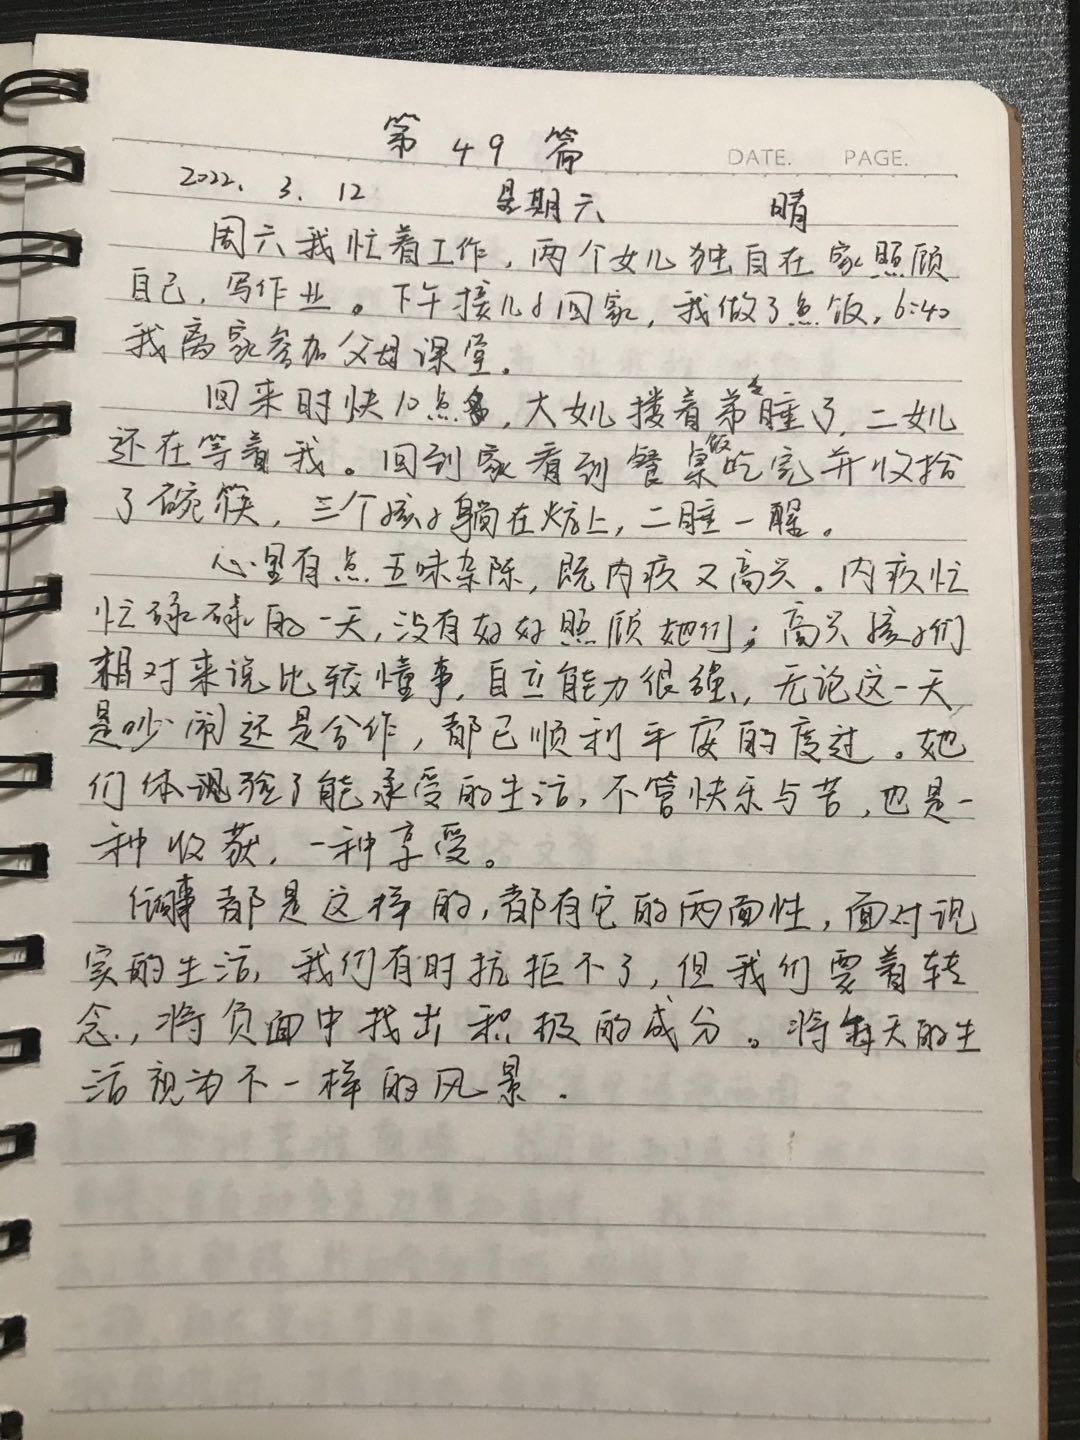 第49篇
DATE. PAGE.
2022.3.12 星期六 晴
周六我忙着工作，两个女儿独自在家照顾
自己，写作业。下午接儿子回家，我做了鱼饭，6:40
我离家参加父母课堂。
回来时快10点，大女儿搂着弟弟睡了，二女儿
还在等着我。回到家看到餐桌饭吃完并收拾
了碗筷，三个孩子躺在炕上，二睡一醒。
心里有点五味杂陈，既内疚又高兴。内疚忙
忙碌碌的一天，没有好好照顾她们；高兴孩子们
相对来说比较懂事，自立能力很强，无论这一天
是吵闹还是合作，都已顺利平安的度过。她
们体验了能承受的生活，不管快乐与苦，也是一
种收获，一种享受。
任何事都是这样的，都有它的两面性，面对现
实的生活，我们有时抗拒不了，但我们要着转
念，将负面中找出积极的成分。将每天的生
活视为不一样的风景.